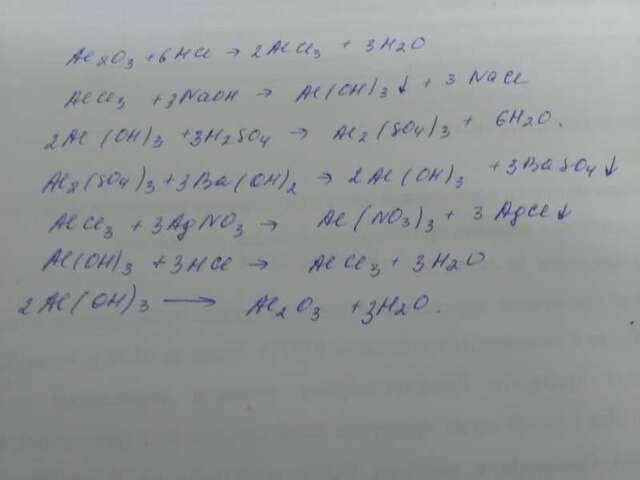 Al2O3 + 6HCl → 2AlCl3 + 3H2O
AlCl3 + 3NaOH → Al(OH)3↓ + 3NaCl
2Al(OH)3 + 3H2SO4 → Al2(SO4)3 + 6H2O.
Al2(SO4)3 + 3Ba(OH)2 → 2Al(OH)3 + 3BaSO4↓
AlCl3 + 3AgNO3 → Al(NO3)3 + 3AgCl↓
Al(OH)3 + 3HCl → AlCl3 + 3H2O
2Al(OH)3 → Al2O3 + 3H2O.